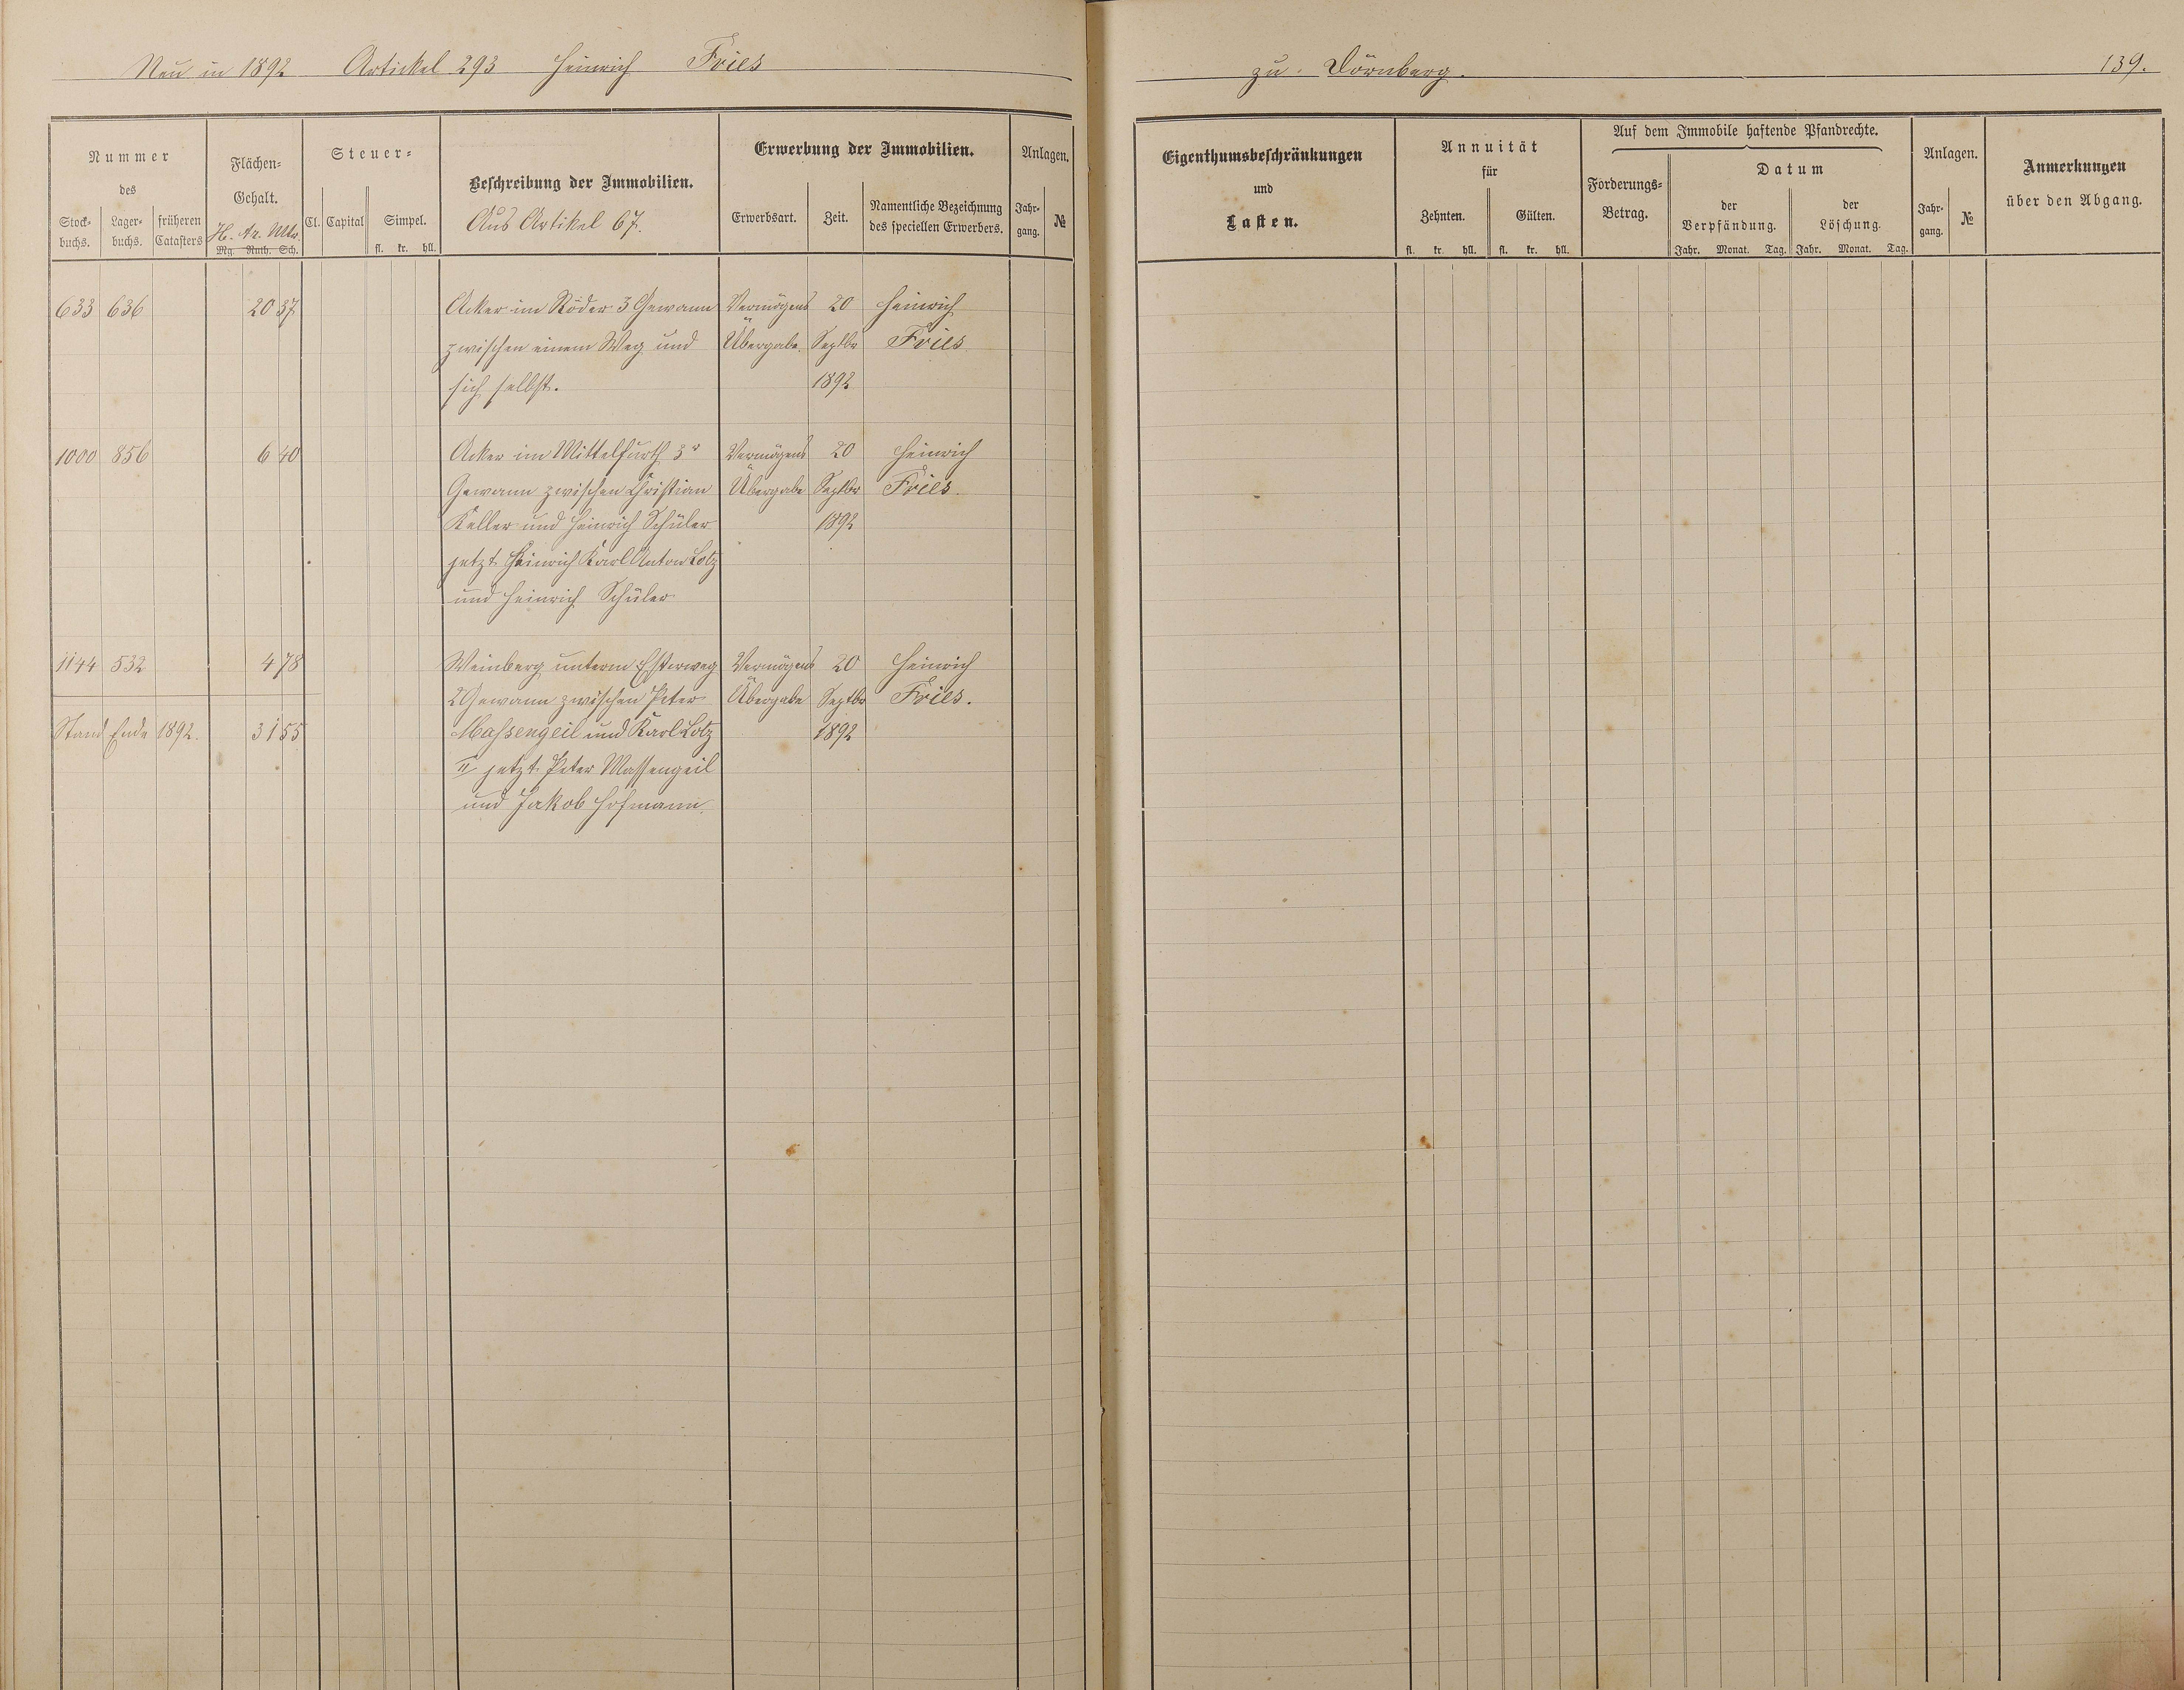 Neu in 1892 Artickel 293 Heinrich Fries
zu Dörnberg. 139.
Nummer
des
Stock-
buchs.
Lager-
buchs.
früheren
Catasters
Flächen-
Gehalt.
H. Ar. Mtr.
Mg. Ruth. Sch.
Steuer-
Cl. Capital Simpel.
fl. kr. hll.
Beschreibung der Immobilien.
Aus Artikel 67.
Erwerbung der Immobilien.
Erwerbsart. Zeit.
Namentliche Bezeichnung
des speciellen Erwerbers.
Anlagen.
Jahr-
gang.
№
Eigenthumsbeschränkungen
und
Lasten.
Annuität
für
Zehnten. Gülten.
fl. kr. hll. fl. kr. hll.
Auf dem Immobile haftende Pfandrechte.
Forderungs-
Betrag.
Datum
der
Verpfändung.
der
Löschung.
Jahr. Monat. Tag. Jahr. Monat. Tag.
Anlagen.
Jahr-
gang.
№
Anmerkungen
über den Abgang.
633 636 20 37 Acker im Röder 3 Gewann Vermögens 20 Heinrich
zwischen einem Weg und Übergabe. Septbr Fries
sich selbst. 1892
1000 856 6 40 Acker im Mittelfurth 3r Vermögens 20 Heinrich
Gewann zwischen Christian Übergabe Septbr Fries.
Keller und Heinrich Schüler 1892
jetzt Heinrich Karl Anton Lotz
und Heinrich Schüler
1144 532 4 78 Weinberg unterm Esterweg Vermögens 20 Heinrich
2 Gewann zwischen Peter Übergabe Septbr Fries.
Stand Ende 1892. 31 55 Massengeil und Karl Lotz 1892
II jetzt Peter Massengeil
und Jakob Hofmann.